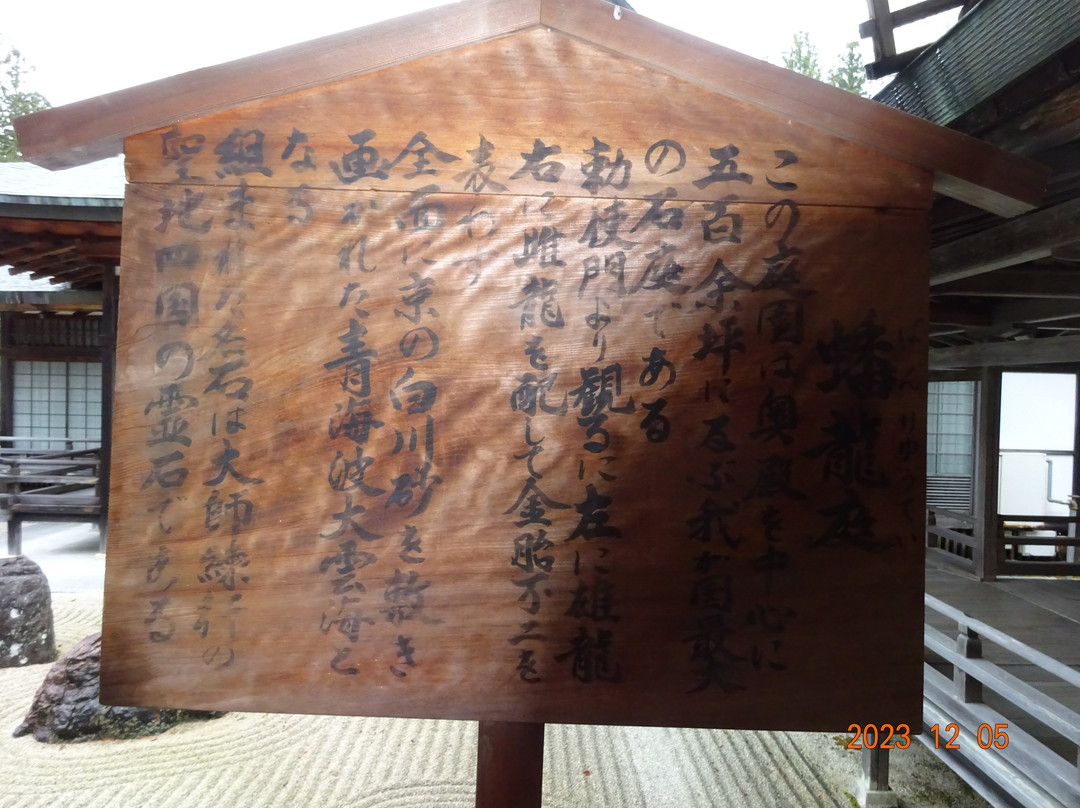 ばんりゆうてい
蟠龍庭
この庭園は奥殿を中心に
五百余坪に及ぶ我が国最大
の石庭である
勅使門より観るに左に雄龍
右に雌龍を配して金胎不二を
表わす
全面に京の白川砂を敷き
画かれた青海波大雲海と
なる
組まれた名石は大師練行の
聖地四国の霊石である
2023 12 05